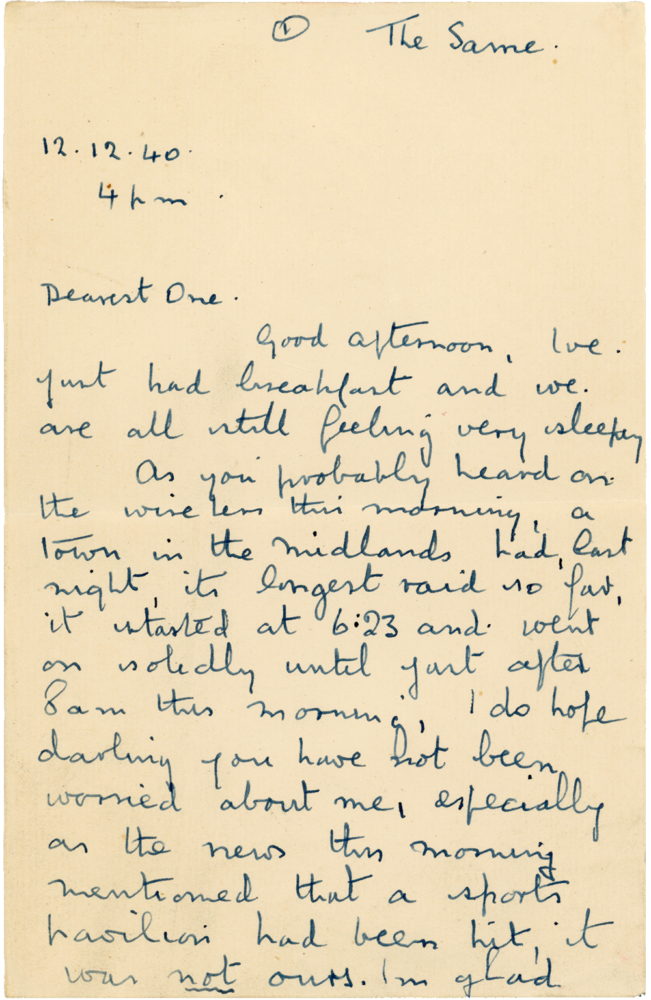 ① The Same.
12.12.40.
4 pm.
Dearest One.
Good afternoon, I've.
just had breakfast and we.
are all still feeling very sleepy
As you probably heard on
the wireless this morning, a
town in the midlands had, last
night, its longest raid so far,
it started at 6:23 and went
on solidly until just after
8am this morning, I do hope
darling you have not been
worried about me, especially
as the news this morning
mentioned that a sports
pavilion had been hit, it
was not ours. I'm glad